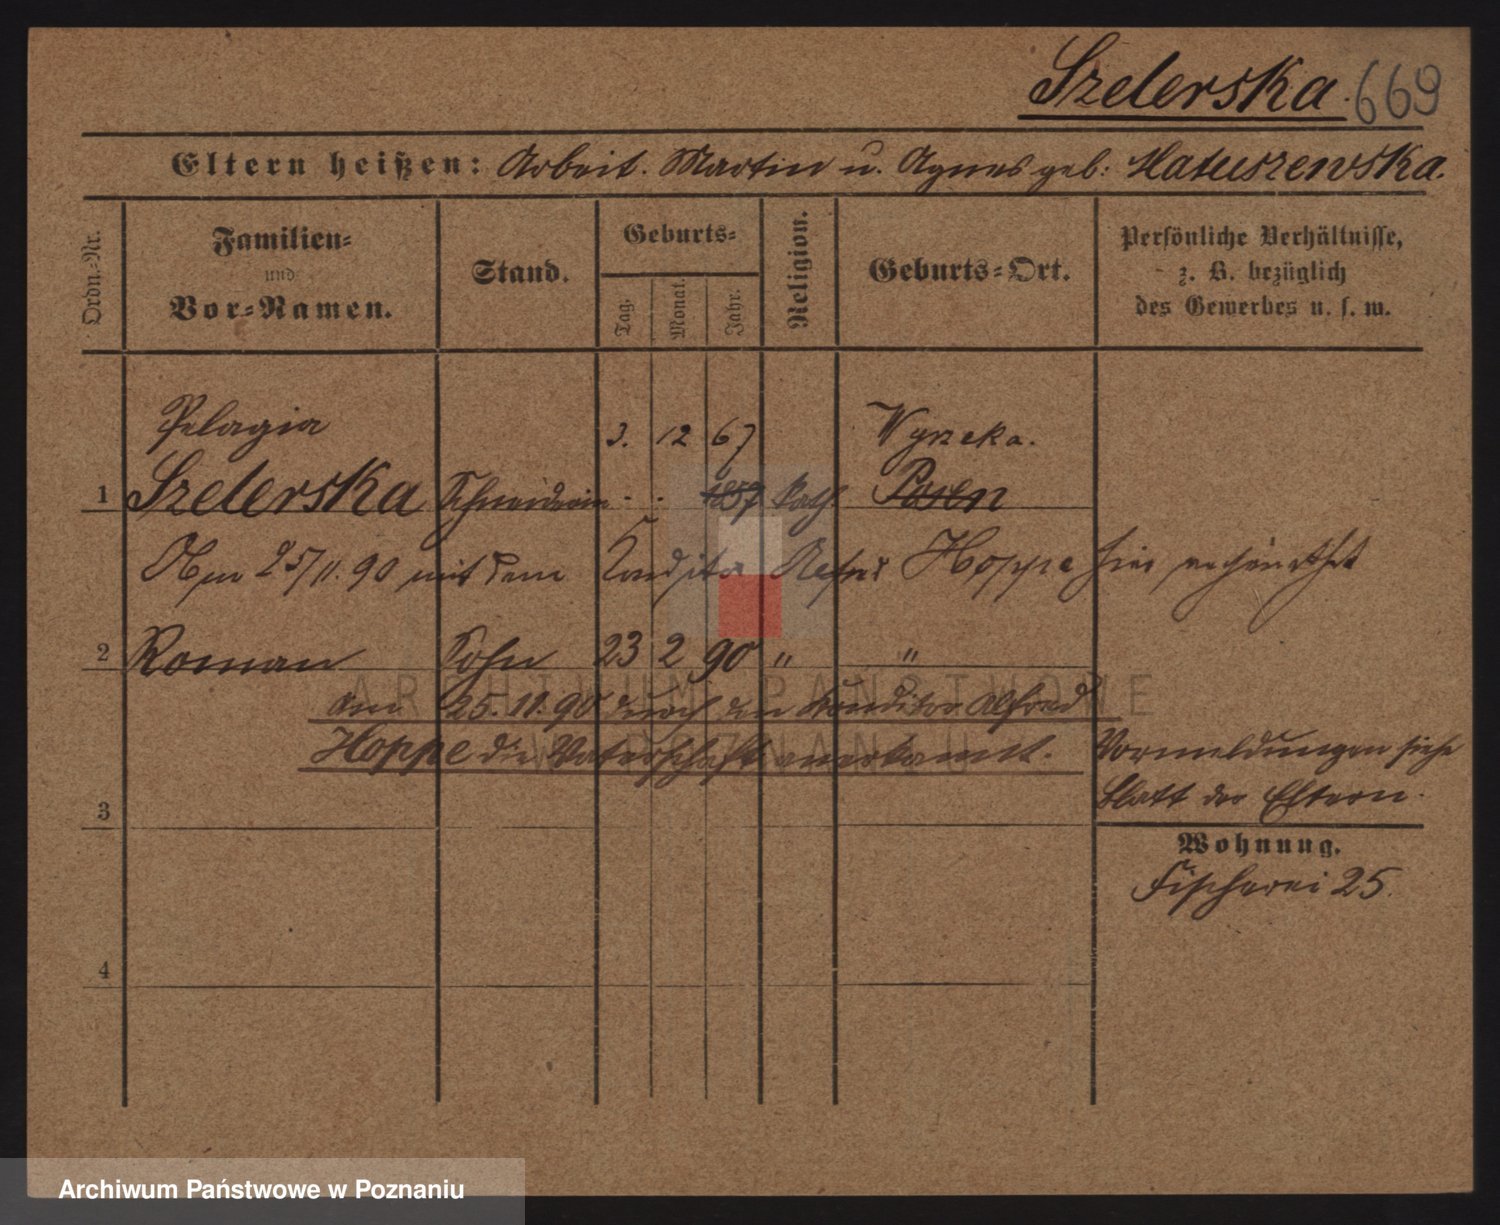 Szelerska. 669
Eltern heißen: Arbeit. Martin u. Agnes geb: Matuszewska.
Ordn.-Nr.
Familien-
und
Vor-Namen.
Stand.
Geburts-
Tag.
Monat.
Jahr.
Religion.
Geburts-Ort.
Persönliche Verhältnisse,
z. B. bezüglich
des Gewerbes u. s. w.
Pelagia 3. 12 67 Wyrzeka.
1 Szelerska Schneiderin - - 1857 Kath. Posen
Am 25/11. 90 mit dem Conditor Hoppe hier
2 Roman Sohn 23 2 90 " "
am 25.11.90 durch den Konditor Alfred
Hoppe die Vaterschaft anerkannt.
Vormeldungen siehe
Blatt der Eltern.
3
Wohnung.
Fischerei 25.
4
ARCHIWUM PAŃSTWOWE
W POZNANIU
Archiwum Państwowe w Poznaniu